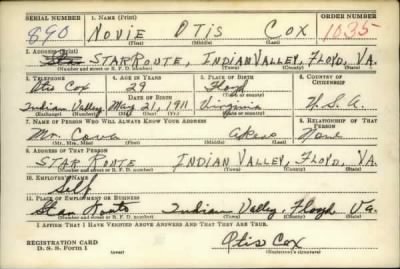 SERIAL NUMBER 1. NAME (Print) ORDER NUMBER
890 NOVIE OTIS COX 1035
(First) (Middle) (Last)
2. ADDRESS (Print)
Star STAR ROUTE, INDIAN VALLEY, FLOYD, VA.
(Number and street or R. F. D. number) (Town) (County) (State)
3. TELEPHONE 4. AGE IN YEARS 5. PLACE OF BIRTH 6. COUNTRY OF CITIZENSHIP
Otis Cox 29 Floyd
DATE OF BIRTH (Town or county)
Indian Valley May 21, 1911 Virginia U.S.A.
(Exchange) (Number) (Mo.) (Day) (Yr.) (State or country)
7. NAME OF PERSON WHO WILL ALWAYS KNOW YOUR ADDRESS 8. RELATIONSHIP OF THAT PERSON
Mr. Akers None
9. ADDRESS OF THAT PERSON
STAR ROUTE INDIAN VALLEY, FLOYD, VA.
(Number and street or R. F. D. number) (Town) (County) (State)
10. EMPLOYER'S NAME
Self
11. PLACE OF EMPLOYMENT OR BUSINESS
Star Route Indian Valley, Floyd Va.
(Number and street or R. F. D. number) (Town) (County) (State)
I AFFIRM THAT I HAVE VERIFIED ABOVE ANSWERS AND THAT THEY ARE TRUE.
REGISTRATION CARD
D. S. S. Form 1 (over) Otis Cox
(Registrant's signature)